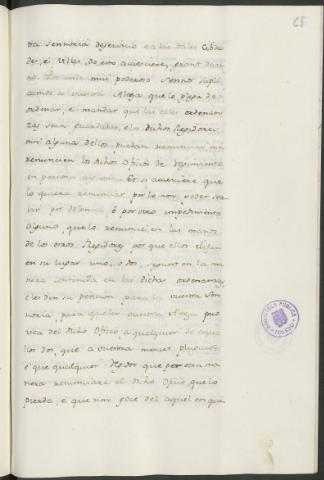 68
tra Sennoria deservicio e a las tales Cibda
des, é Villas, do esto acaesciere, grant dan
no. Por ende mui poderoso Sennor supli
camos a vuestra Alteza, que le plega de
ordenar, é mandar que las tales ordenan
zas sean guardadas, é los dichos Regidores
nin alguno dellos puedan renunciar, nin
renuncien los dichos Oficios de regimiento
en personas
Et si acaesciere que
lo quiera renunciar por lo non poder ser
vir por dolencia, é por otro impedimiento
alguno, que lo renuncie en las manos
de los otros Regidores, por que ellos elijan
en su lugar uno, o dos, segunt en la ma
nera contenida en las dichas ordenanzas,
é les den su peticion para la vuestra Sen
noria, para que la vuestra Alteza pro
vea del dicho Oficio a qualquier de aque
llos dos, que a vuestra merced pluguiere
é que qualquier Regidor que por otra ma
nera renunciare el dicho Oficio que lo
pierda, é que non goce del aquel en que
BIBLIOTECA PUBLICA
TOLEDO